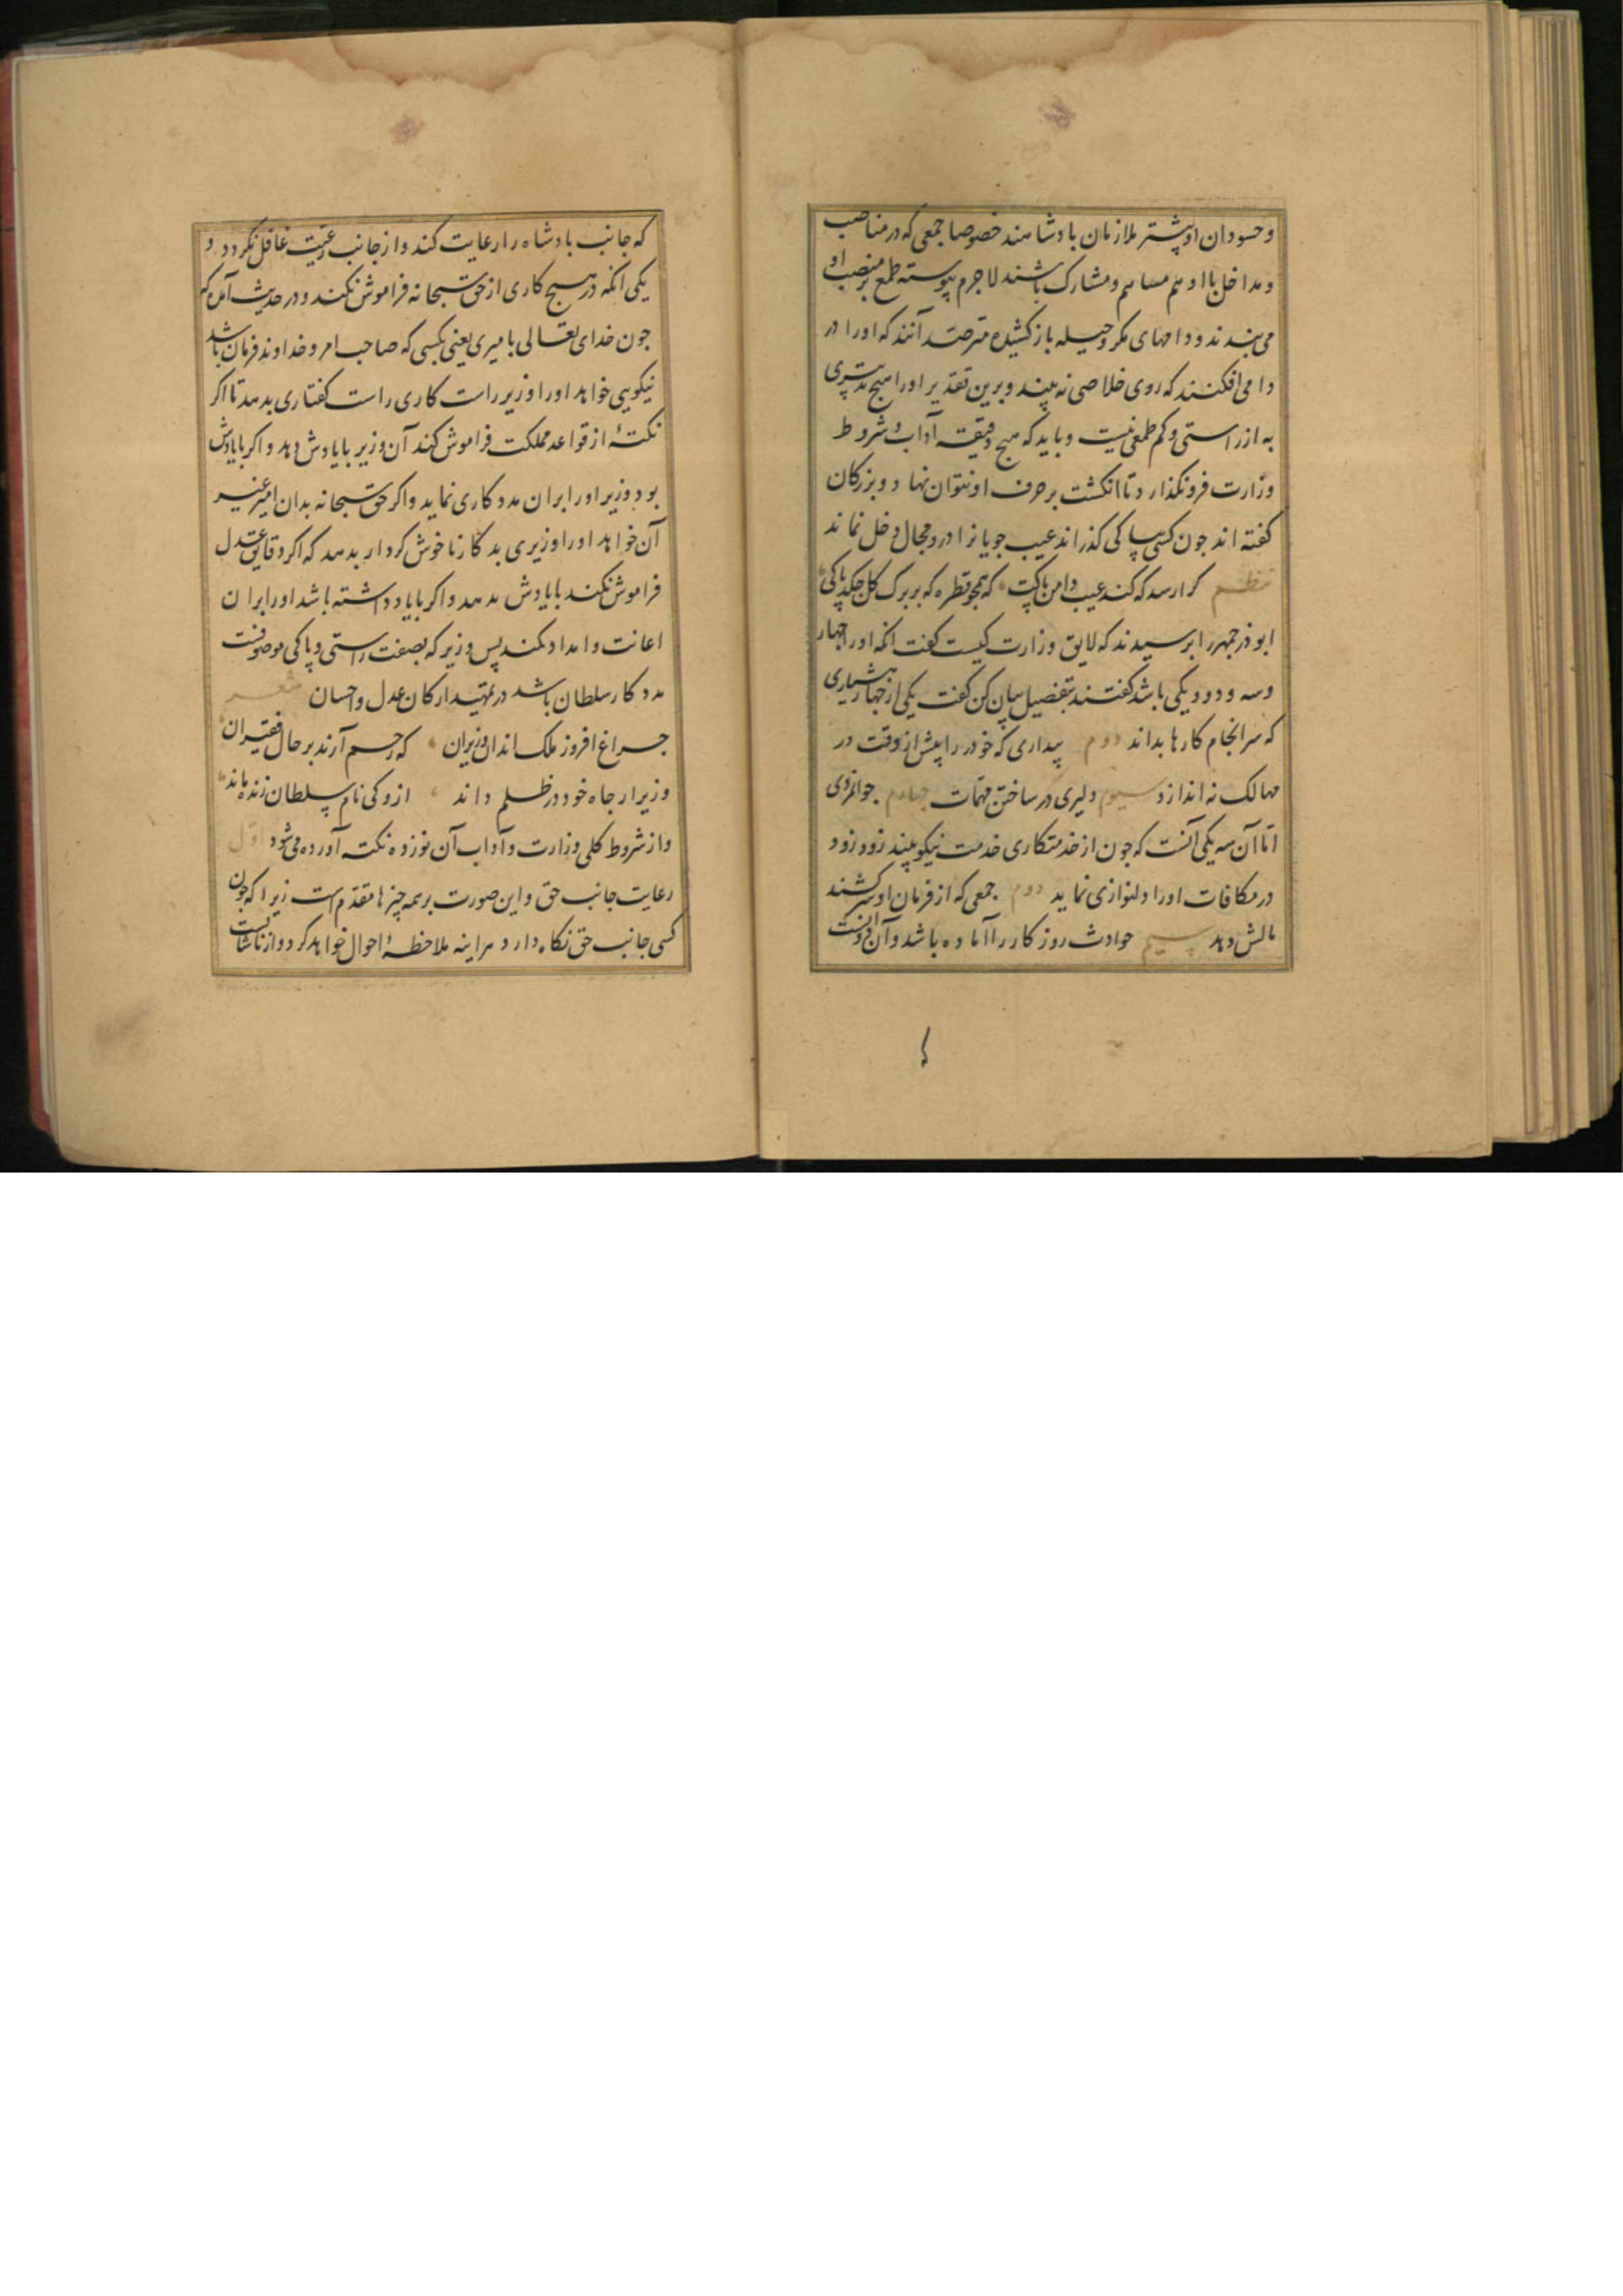 و حسودان او بیشتر ملازمان بادشاهند خصوصا جمعی که در مناصب
و مداخل با او هم مساهم و مشارک باشند لاجرم پیوسته طمع بر منصب او
می بندند و دامهای مکر و حیله باز کشیده مترصد آنند که او را در
دامی افکنند که روی خلاصی نه بیند و برین تقدیر او را هیچ تدبیری
به از راستی و کم طمعی نیست و باید که هیچ دقیقه آداب و شروط
وزارت فرو نکذارد تا انکشت بر حرف او نتوان نهاد و بزرکان
کفته اند جون کسی بپاکی کذراند عیب جویانرا درو مجال دخل نماند
نظم کرا رسد که کند عیب دامن پاکت که همجو قطره که بر برک کل جکد پاکی
ابوذرجمهر را برسیدند که لایق وزارت کیست کفت آنکه او را جهار
و سه و دو و یکی باشد کفتند بتفصیل بیان کن کفت یکی از جهار هشیاری
که سرانجام کارها بداند دوم بیداری که خود را پیش از وقت در
مهالک نه اندازد سیوم دلیری در ساختن مهمات جهارم جوانمردی
اما آن سه یکی آنست که جون از خدمتکاری خدمت نیکو بیند زود زود
در مکافات او را دلنوازی نماید دوم جمعی که از فرمان او سر کشند
مالش دهد سیم حوادث روزکار را آماده باشد و آن دو آنست
که جانب بادشاه را رعایت کند و از جانب رعیت غافل نکردد و
یکی آنکه در هیج کاری از حق سبحانه فراموش نکند و در حدیث آمده که
جون خدای تعالی با میری یعنی بکسی که صاحب امر و خداوند فرمان باشد
نیکویی خواهد او را وزیر راست کاری راست کفتاری بدهد تا اکر
نکتهٔ از قواعد مملکت فراموش کند آن وزیر با یادش دهد و اکر با یادش
بود وزیر او را بران مددکاری نماید و اکر حق سبحانه بدان امیر غیر
آن خواهد او را وزیری بدکار ناخوش کردار بدهد که اکر دقایق عدل
فراموش کند با یادش ندهد و اکر با یاد داشته باشد او را بران
اعانت و امداد نکند پس وزیر که بصفت راستی و پاکی موصوفست
مددکار سلطان باشد در تمهید ارکان عدل و احسان شعر
جراغ افروز ملک اند آن وزیران که رحم آرند بر حال فقیران
وزیر ار جاه خود در ظلم داند ازو کی نام سلطان زنده ماند
و از شروط کلی وزارت و آداب آن نوزده نکته آورده می شود اول
رعایت جانب حق و این صورت بر همه چیزها مقدم است زیرا که جون
کسی جانب حق نکاه دارد هر اینه ملاحظهٔ احوال خواهد کرد و از ناشایست